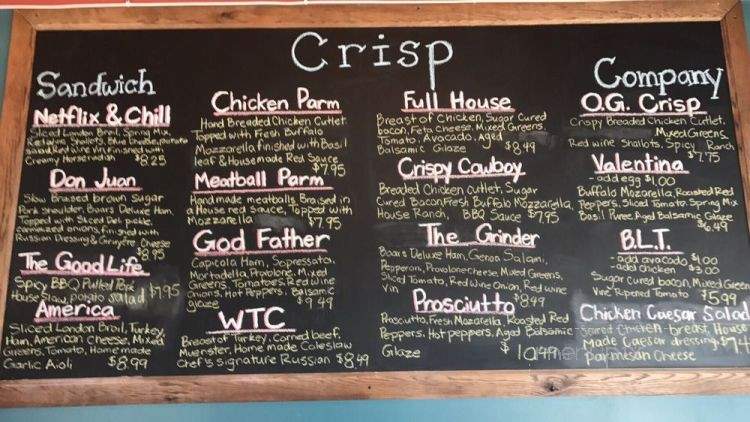 Crisp
Sandwich
Company
Netflix & Chill
Sliced London Broil, Spring Mix,
Red Wine Shallots, Blue Cheese, tomato
and Red Wine Vin, finished with
Creamy Horseradish $8.25
Don Juan
Slow Braised brown sugar
Pork Shoulder, Boars Deluxe Ham,
Topped with Sour Deli pickle,
caramelized onions, finished with
Russian Dressing & Gruyère Cheese
$8.95
The Good Life
Spicy BBQ Pulled Pork
House Slaw, potato salad $7.95
America
Sliced London Broil, Turkey,
Ham, American cheese, Mixed
Greens, Tomato, Homemade
Garlic Aioli $8.99
Chicken Parm
Hand Breaded Chicken Cutlet
Topped with Fresh Buffalo
Mozzarella finished with Basil
leaf & Housemade Red Sauce
$7.95
Meatball Parm
Handmade meatballs, Braised in
a House red Sauce, Topped with
Mozzarella $7.95
God Father
Capicola Ham, Sopressata,
Mortadella, Provolone, Mixed
Greens, Tomatoes, Red Wine
Onions, Hot Peppers, Balsamic
glaze $9.49
WTC
Breast of Turkey, Corned beef,
Muenster, Home made Coleslaw
Chef's signature Russian $8.49
Full House
Breast of Chicken, Sugar Cured
bacon, Feta cheese, Mixed Greens,
Tomato, Avocado, Aged
Balsamic Glaze $8.49
Crispy Cowboy
Breaded Chicken cutlet, Sugar
Cured Bacon, Fresh Buffalo Mozzarella,
House Ranch, BBQ Sauce $7.95
The Grinder
Boars Deluxe Ham, Genoa Salami,
Pepperoni, Provolone cheese, Mixed Greens,
Sliced Tomato, Red Wine Onion, Red Wine
Vin $8.49
Prosciutto
Prosciutto, Fresh Mozzarella, Roasted Red
Peppers, Hot peppers, Aged Balsamic
Glaze $10.49
O.G. Crisp
Crispy Breaded Chicken Cutlet,
Mixed Greens,
Red wine Shallots, Spicy Ranch
$7.75
Valentina
- add egg $1.00
Buffalo Mozzarella, Roasted Red
Peppers, Sliced Tomato, Spring Mix
Basil Puree, Aged Balsamic Glaze
$6.49
B.L.T.
- add avocado $1.00
- add chicken $3.00
Sugar cured bacon, Mixed Greens
Vine Ripened Tomato $5.99
Chicken Caesar Salad
Seared chicken breast, House
Made Caesar dressing, $7.4
Parmesan Cheese